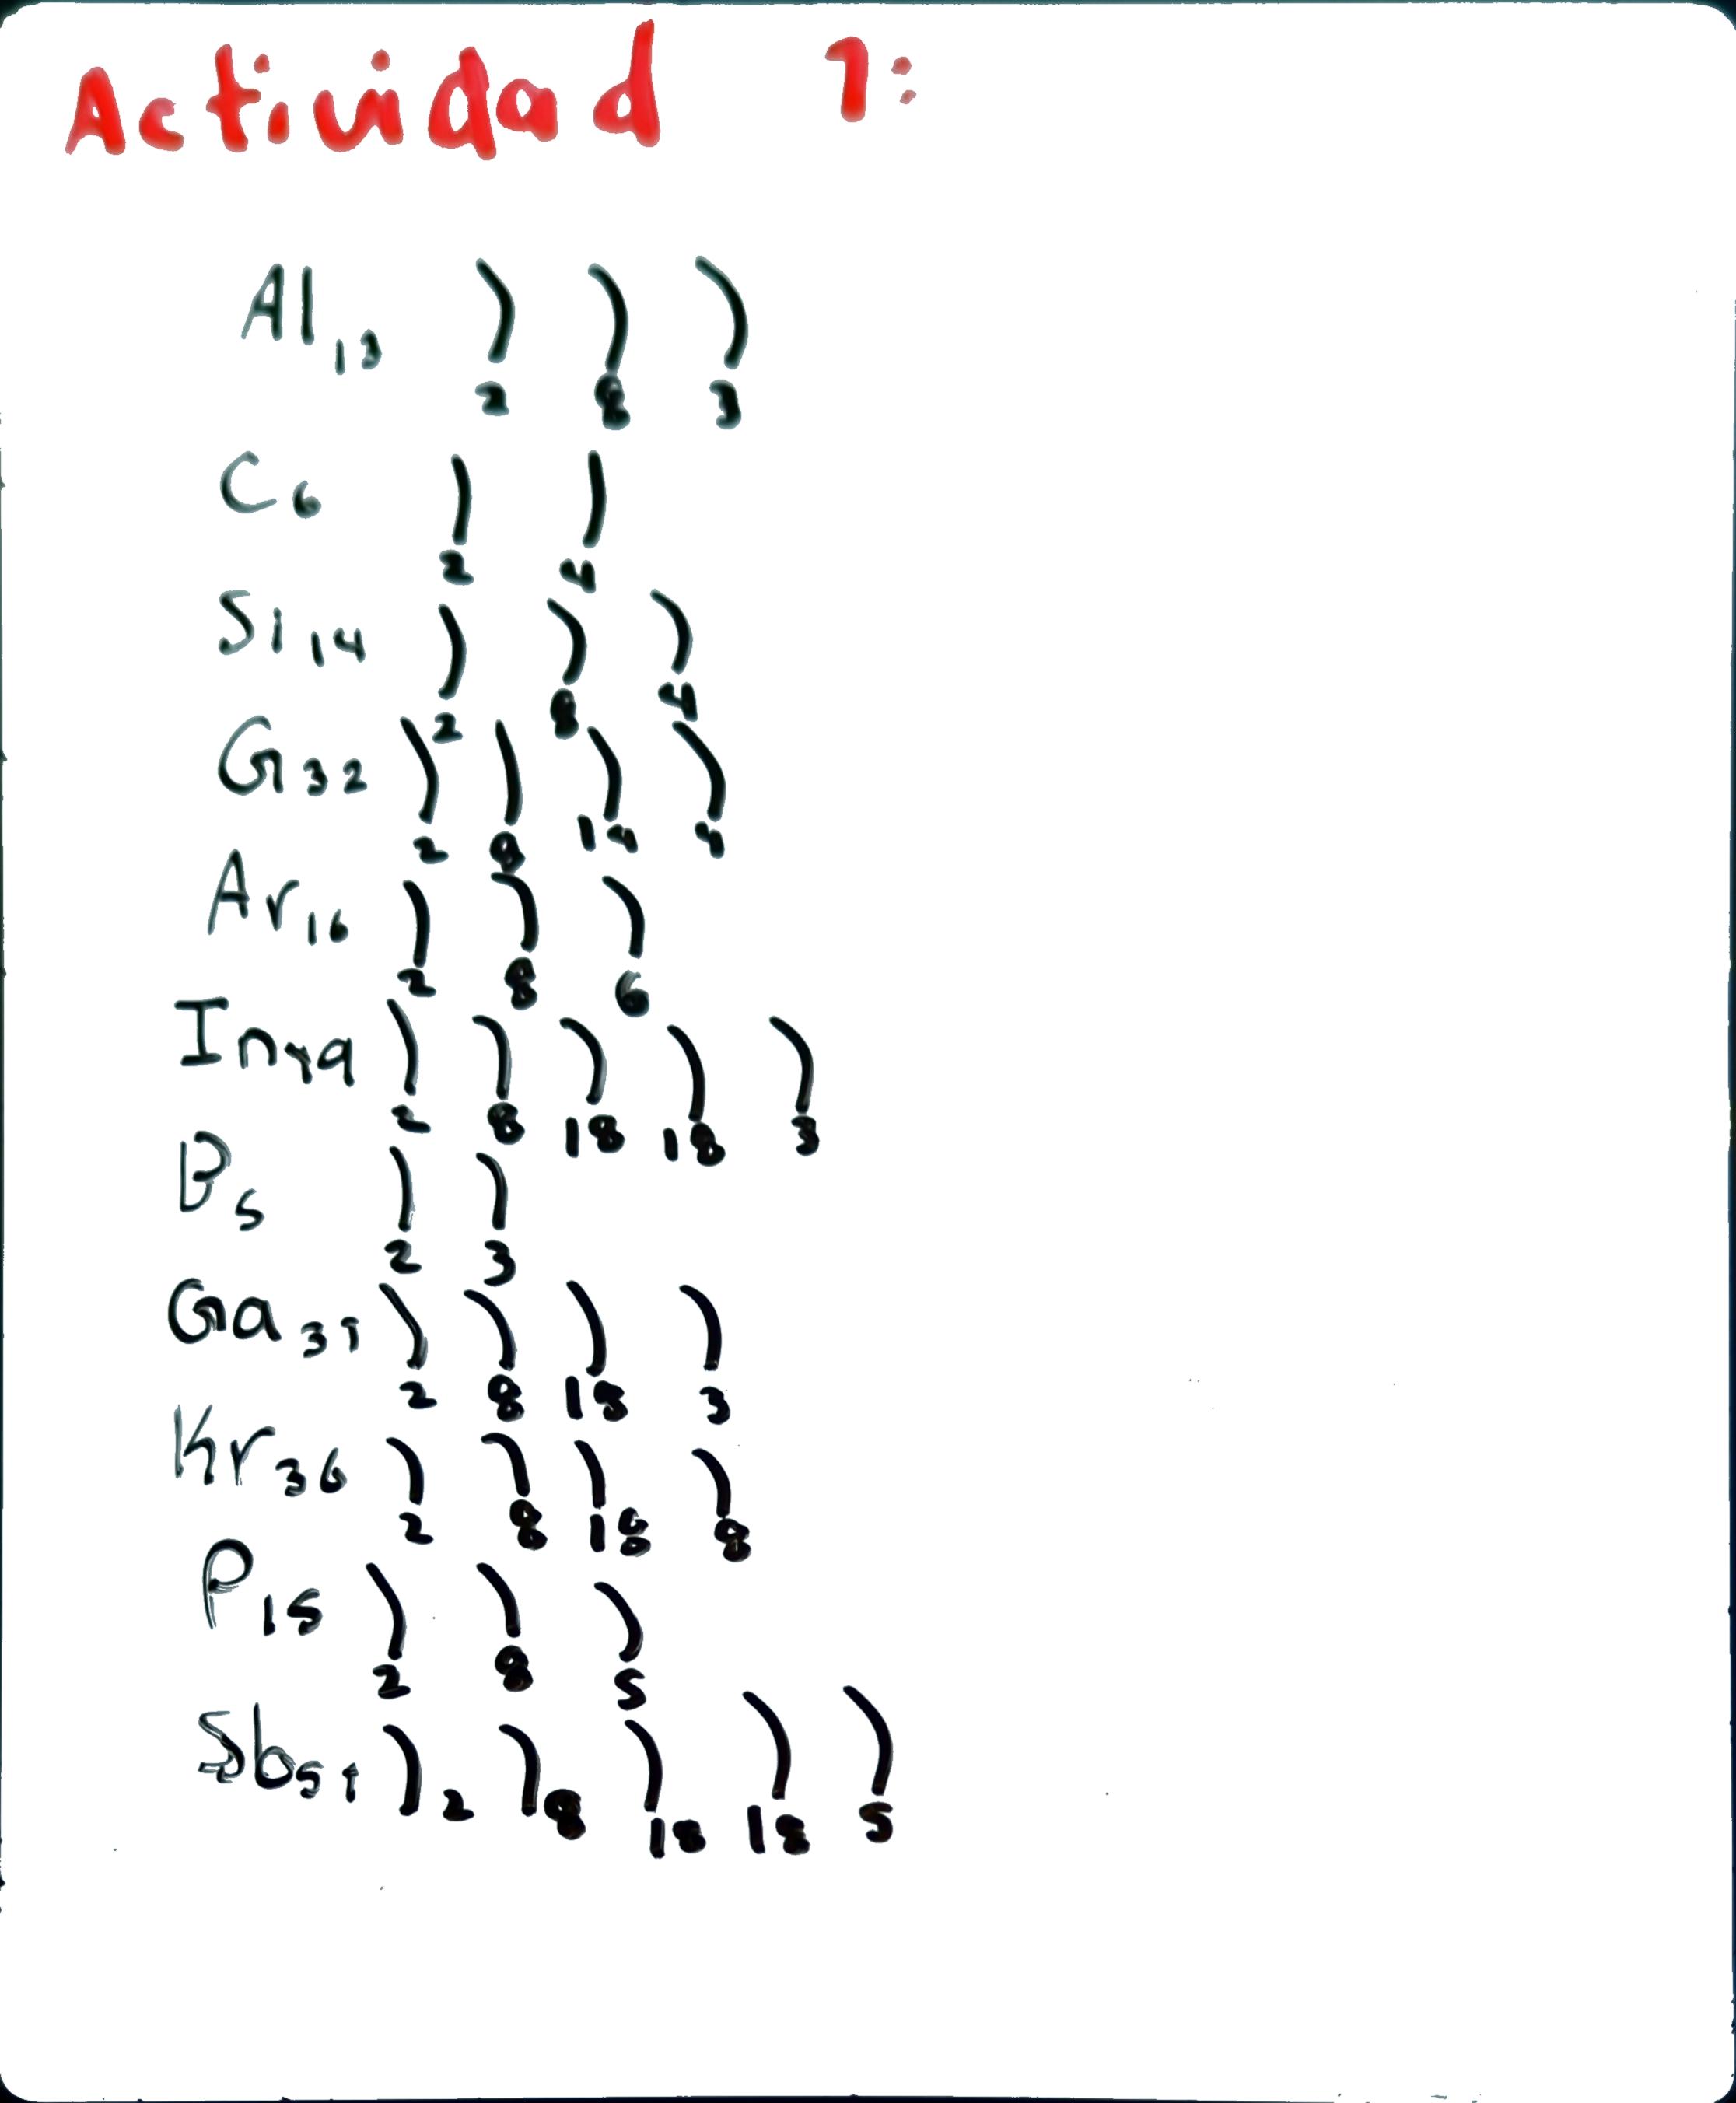 Actividad 1:
Al 13 ) ) )
2 8 3
C 6 ) )
2 4
Si 14 ) ) )
2 8 4
G 32 ) ) ) )
2 8 14 4
Ar 16 ) ) )
2 8 6
In 49 ) ) ) ) )
2 8 18 18 3
B 5 ) )
2 3
Ga 31 ) ) ) )
2 8 18 3
Kr 36 ) ) ) )
2 8 18 8
P 15 ) ) )
2 8 5
Sb 51 ) ) ) ) )
2 8 18 18 5